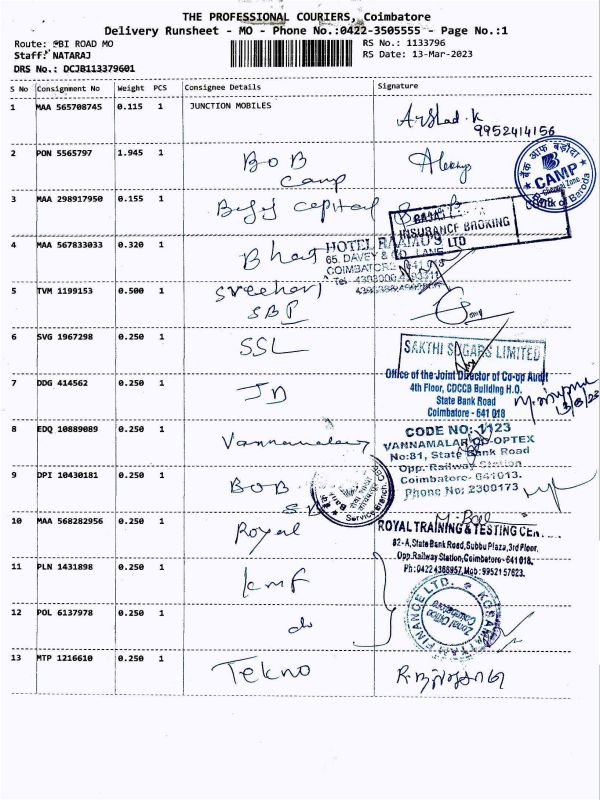 THE PROFESSIONAL COURIERS, Coimbatore
Delivery Runsheet - MO - Phone No.:0422-3505555 - Page No.:1
Route: SBI ROAD MO
RS No.: 1133796
Staff: NATARAJ
RS Date: 13-Mar-2023
DRS No.: DCJB113379601
S No Consignment No Weight PCS Consignee Details Signature
1 MAA 565708745 0.115 1 JUNCTION MOBILES Arshad.K
9952414156
2 PON 5565797 1.945 1 BOB
Camp
बैंक ऑफ़ बड़ौदा
CAMP
Bank of Baroda
3 MAA 298917950 0.155 1 Bajaj Capital
BAJAJ CAPITAL
INSURANCE BROKING
LTD
4 MAA 567833033 0.320 1 Bhart
HOTEL RAAMO'S
65, DAVEY & CO. LANE
COIMBATORE
5 TVM 1199153 0.500 1 Sreehari
SBP
6 SVG 1967298 0.250 1 SSL
SAKTHI SUGARS LIMITED
Office of the Joint Director of Co-op Audit
4th Floor, CDCCB Building H.O.
7 DDG 414562 0.250 1 JD
State Bank Road
Coimbatore - 641 018
13/3/23
8 EDQ 10889089 0.250 1 Vannamalar
CODE NO: 1123
VANNAMALAR CO-OPTEX
No:81, State Bank Road
Opp. Railway Station
Coimbatore- 641013.
Phone No: 2303173
9 DPI 10430181 0.250 1 BOB
Service Branch
10 MAA 568282956 0.250 1 Royal
ROYAL TRAINING & TESTING CEN
82-A, State Bank Road, Subbu Plaza, 3rd Floor,
Opp. Railway Station, Coimbatore- 641 018.
11 PLN 1431898 0.250 1 kmf
Ph: 0422 4365957, Mob: 9952157623.
12 POL 6137978 0.250 1 do
KOSAMATTAM FINANCE LTD.
Zonal Office
Coimbatore
13 MTP 1216610 0.250 1 Tekno